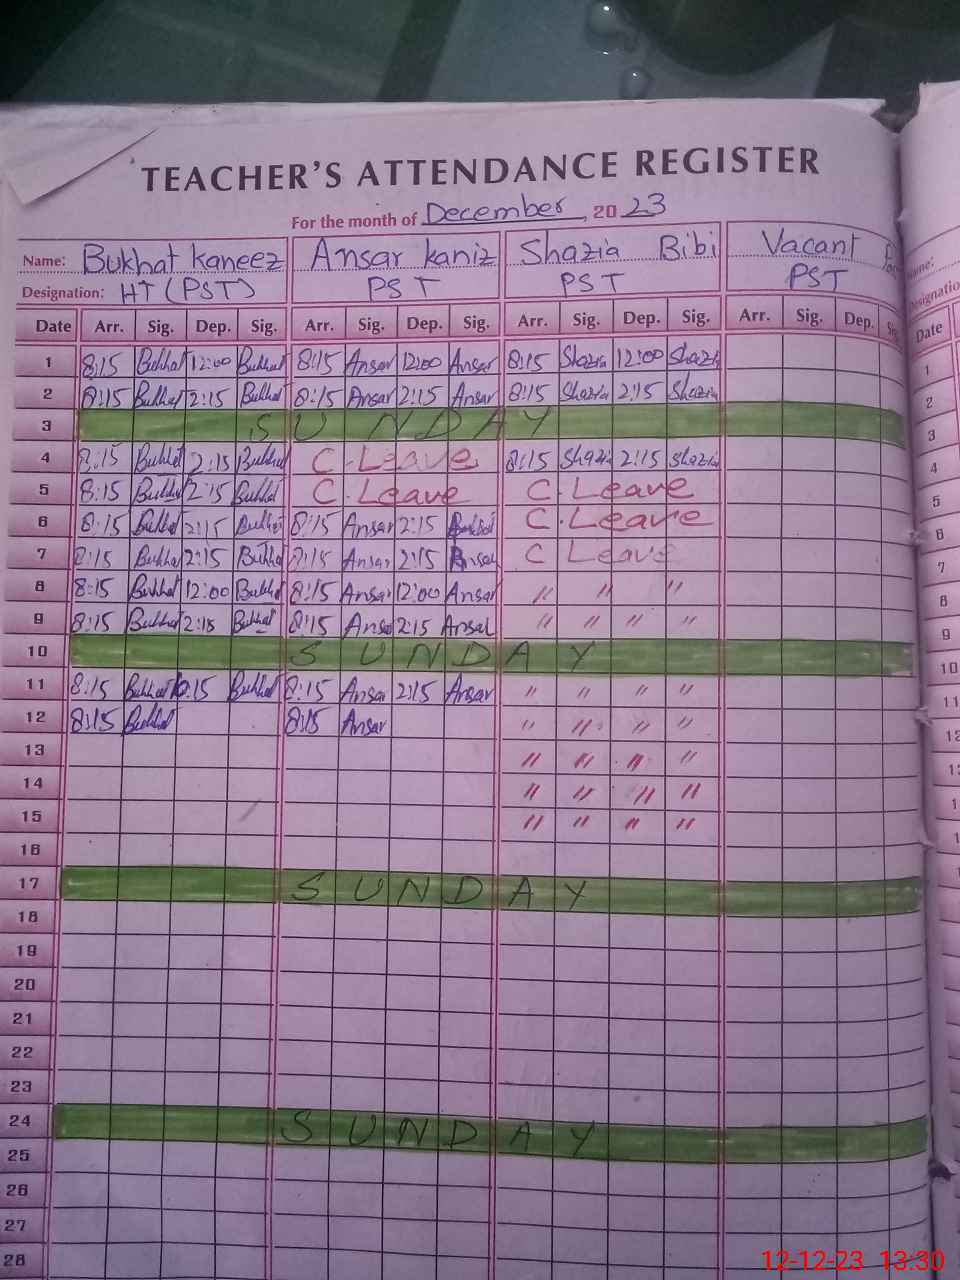 TEACHER'S ATTENDANCE REGISTER
For the month of December, 20 23
Name: Bukhat kaneez Ansar kaniz Shazia Bibi Vacant
Designation: HT (PST) PST PST PST
Date Arr. Sig. Dep. Sig. Arr. Sig. Dep. Sig. Arr. Sig. Dep. Sig. Arr. Sig. Dep. Date
1 8:15 Bukhat 12:00 Bukhat 8:15 Ansar 12:00 Ansar 8:15 Shazia 12:00 Shazia 1
2 8:15 Bukhat 2:15 Bukhat 8:15 Ansar 2:15 Ansar 8:15 Shazia 2:15 Shazia 2
3 SUNDAY 3
4 8:15 Bukhat 2:15 Bukhat C. Leave 8:15 Shazia 2:15 Shazia 4
5 8:15 Bukhat 2:15 Bukhat C. Leave C. Leave 5
6 8:15 Bukhat 2:15 Bukhat 8:15 Ansar 2:15 C. Leave 6
7 8:15 Bukhat 2:15 Bukhat 8:15 Ansar 2:15 Ansar C Leave 7
8 8:15 Bukhat 12:00 Bukhat 8:15 Ansar 12:00 Ansar " " " 8
9 8:15 Bukhat 2:15 Bukhat 8:15 Ansar 2:15 Ansar " " " " 9
10 SUNDAY 10
11 8:15 Bukhat Bukhat 8:15 Ansar 2:15 Ansar " " " " 11
12 8:15 Bukhat 8:15 Ansar " " " " 12
13 " " " "
14 " " " "
15 " " " "
16
17 SUNDAY
18
19
20
21
22
23
24 SUNDAY
25
26
27
28
12-12-23 13:30